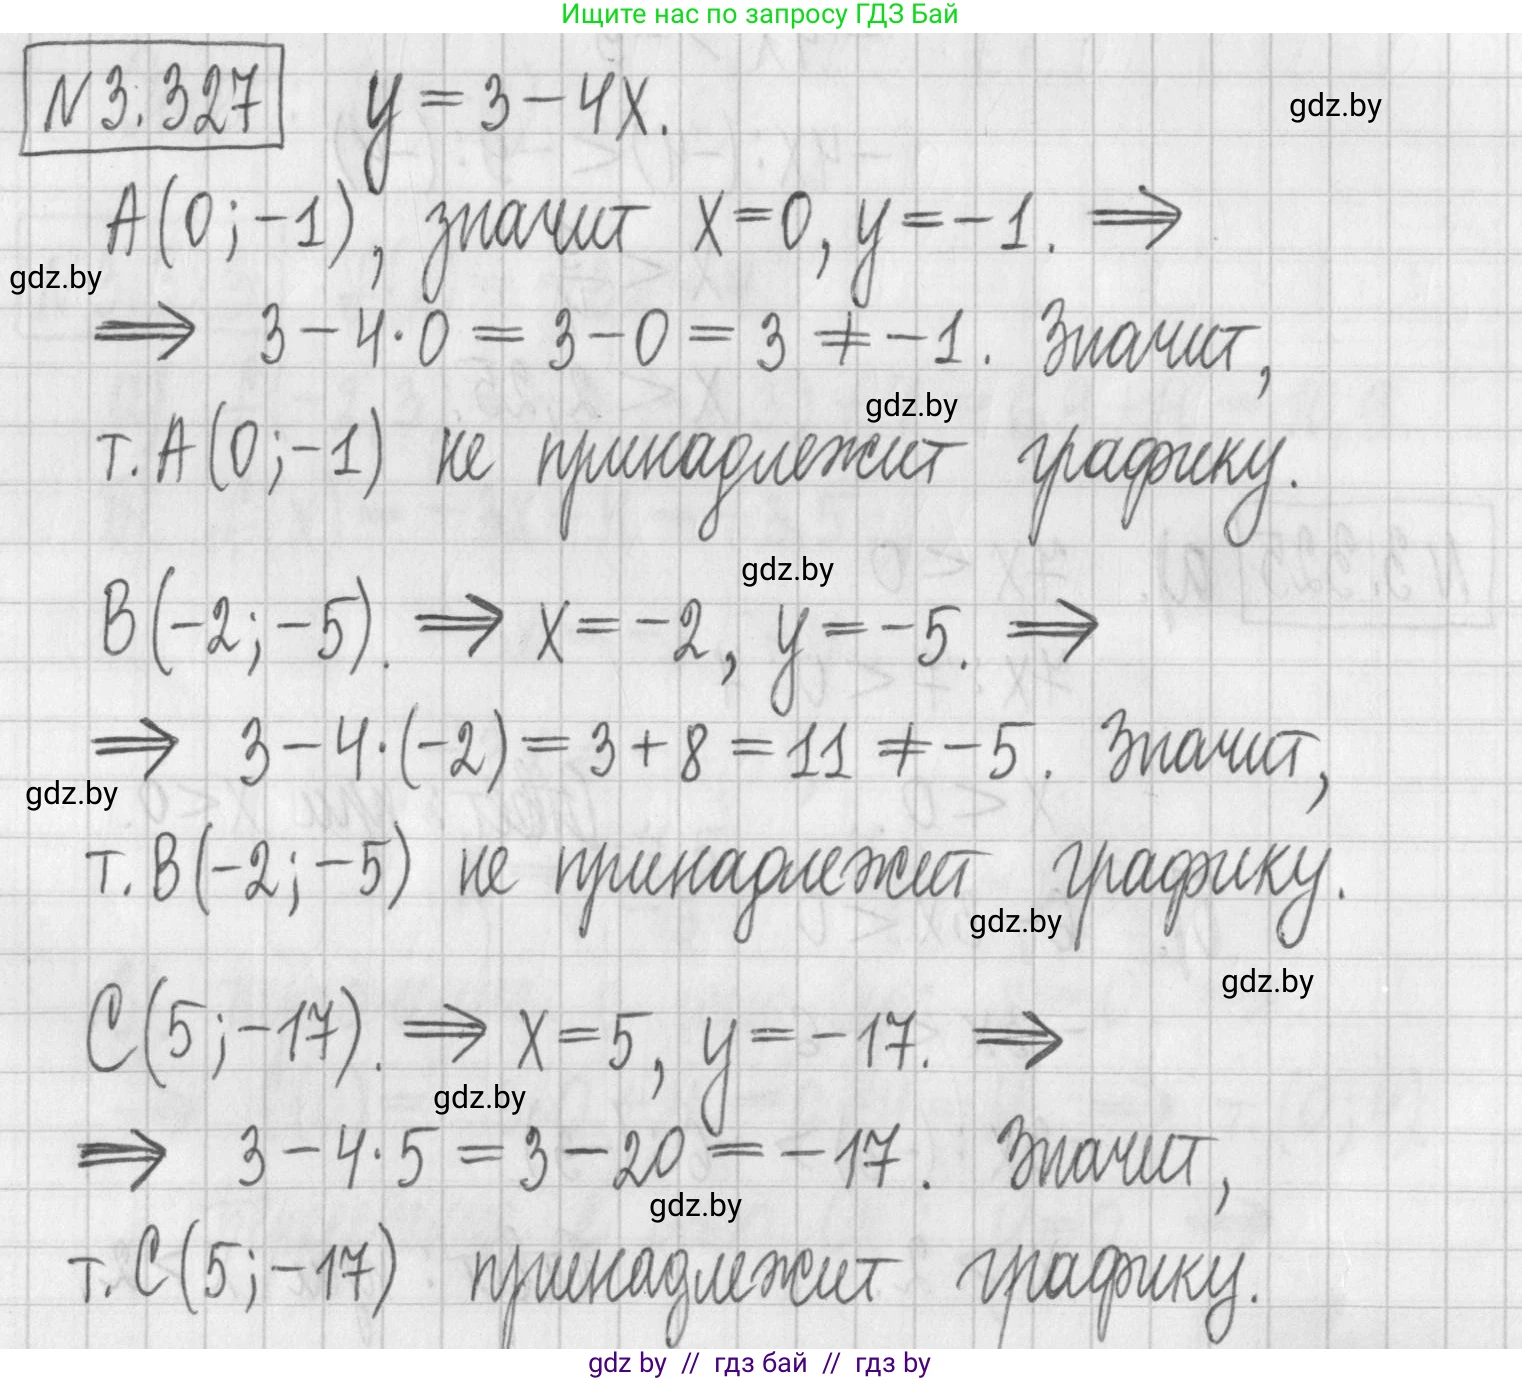 Ищите нас по запросу ГДЗ Бай
N 3.327 y = 3 - 4x.
gdz.by
A(0; -1), значит x = 0, y = -1. ⟹
gdz.by
⟹ 3 - 4 · 0 = 3 - 0 = 3 ≠ -1. Значит,
gdz.by
т. A(0; -1) не принадлежит графику.
gdz.by
B(-2; -5). ⟹ x = -2, y = -5. ⟹
⟹ 3 - 4 · (-2) = 3 + 8 = 11 ≠ -5. Значит,
gdz.by
т. B(-2; -5) не принадлежит графику.
gdz.by
gdz.by
C(5; -17). ⟹ x = 5, y = -17. ⟹
gdz.by
⟹ 3 - 4 · 5 = 3 - 20 = -17. Значит,
gdz.by
т. C(5; -17) принадлежит графику.
gdz by // гдз бай // гдз by